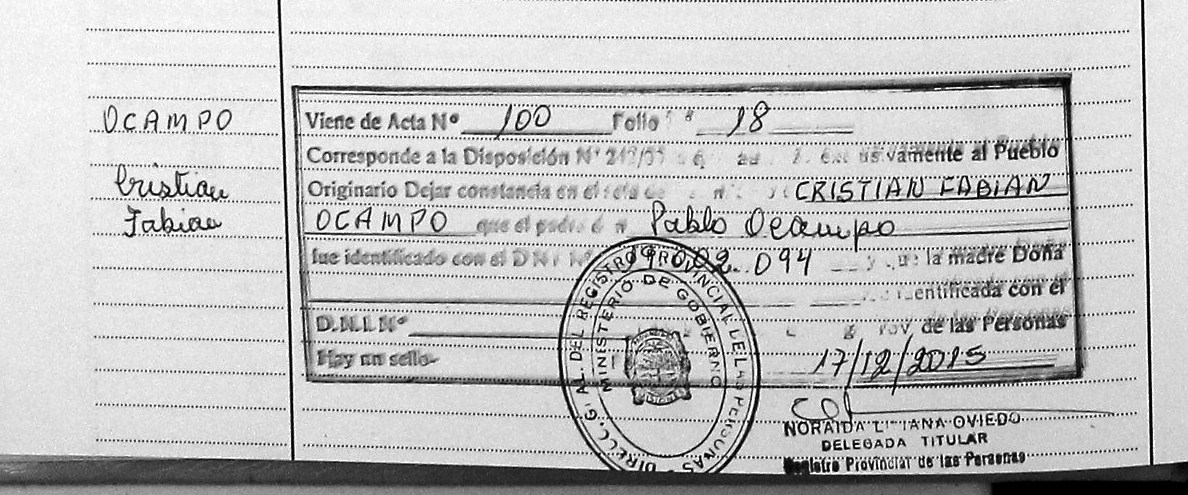 OCAMPO
Cristian
Fabian
Viene de Acta Nº 100 Folio 18
Corresponde a la Disposición Nº al Pueblo
Originario Dejar constancia en el CRISTIAN FABIAN
OCAMPO que el padre Pablo Ocampo
fue identificado con el DNI 002.094 la madre Doña
identificada con el
D.N.I. Nº de las Personas
Hay un sello-
17/12/2015
DIRECC. G AL. DEL REGISTRO PROVINCIAL DE LAS PERSONAS
MINISTERIO DE GOBIERNO
NORAIDA OVIEDO
DELEGADA TITULAR
Registro Provincial de las Personas